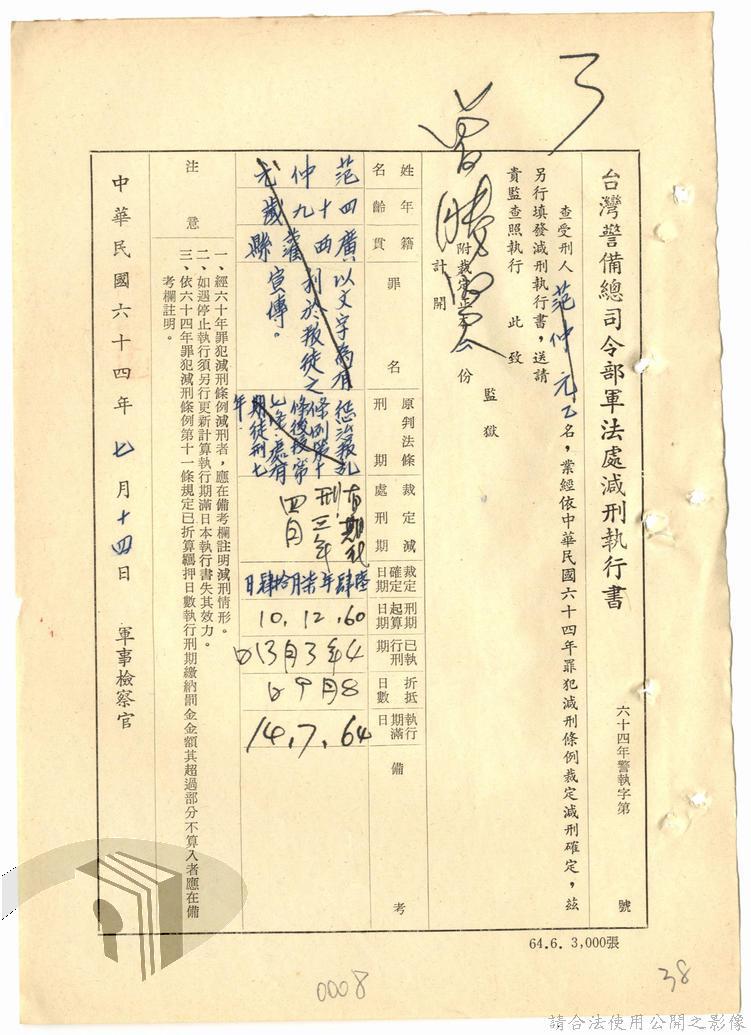 台灣警備總司令部軍法處減刑執行書
六十四年警執字第 號
查受刑人范仲元乙名，業經依中華民國六十四年罪犯減刑條例裁定減刑確定，茲
另行填發減刑執行書，送請
貴監查照執行 此致
監獄
附裁定正本 份
計開
姓名
年齡
籍貫
罪名
原判法條刑期
裁定減處刑期
裁定確定日期
刑期起算日期
已執行刑期
折抵日數
執行期滿日期
備考
范仲元
四十九歲
廣西藩縣
以文字為有利於叛徒之宣傳。
懲治叛亂條例第七條後段，處有期徒刑七年
有期徒刑三年四月
陸肆年柒月拾肆日
60.12.10
4年3月13日
8月9日
64.7.14
注意
一、經六十年罪犯減刑條例減刑者，應在備考欄註明減刑情形。
二、如遇停止執行須另行更新計算執行期滿日本執行書失其效力。
三、依六十四年罪犯減刑條例第十一條規定已折算羈押日數執行刑期繳納罰金金額其超過部分不算入者應在備
考欄註明。
中華民國六十四年七月十四日
軍事檢察官
64.6. 3,000張
0008
38
請合法使用公開之影像